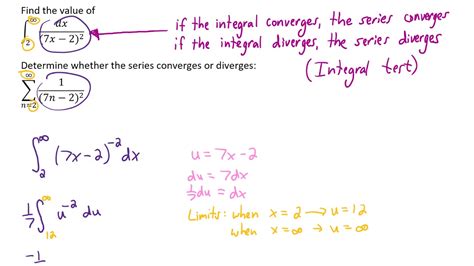 Find the value of
∫₂^∞ dx/(7x − 2)²
if the integral converges, the series converges
if the integral diverges, the series diverges
(Integral test)
Determine whether the series converges or diverges:
∑ₙ₌₂^∞ 1/(7n − 2)²
∫₂^∞ (7x−2)⁻² dx
u = 7x−2
du = 7dx
1/7 du = dx
1/7 ∫₁₂^∞ u⁻² du
Limits: when x = 2 → u = 12
when x = ∞ → u = ∞
−1